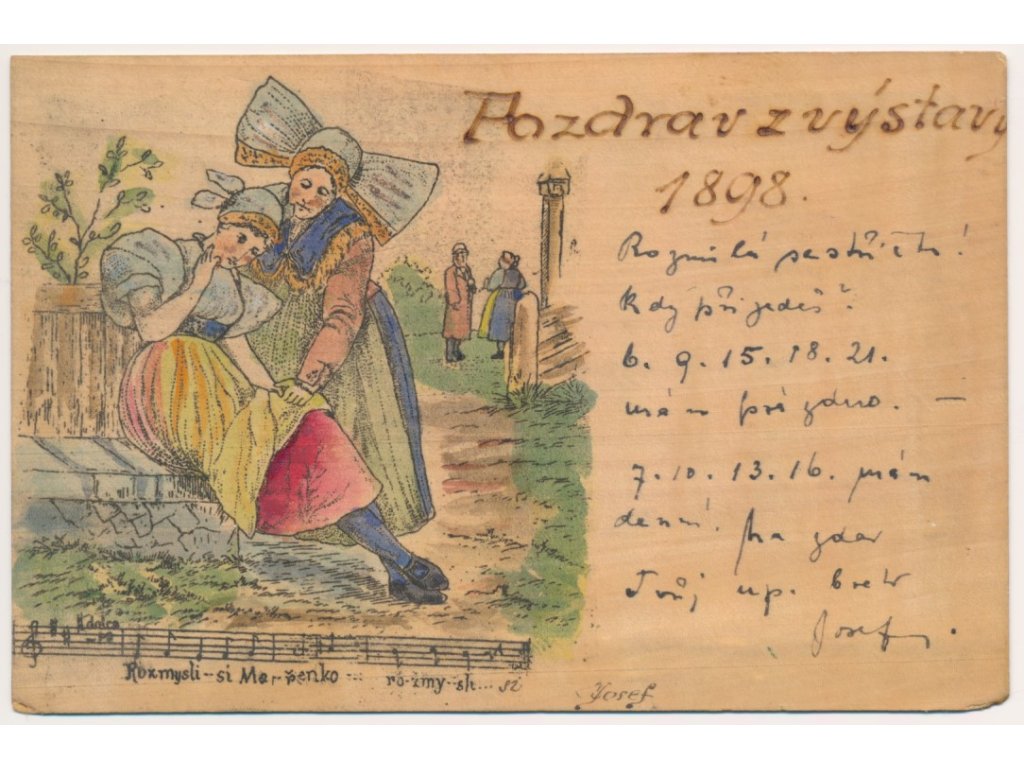 Pozdrav z výstavy
1898.
Rozmilá sestřičko!
Kdy přijedeš?
6. 9. 15. 18. 21.
mám prázdno. —
7. 10. 13. 16. mám
denní. Na zdar
Tvůj up. bratr
Josef.
Rozmysli-si Mařenko ... ro-zmy-sli... si
Josef